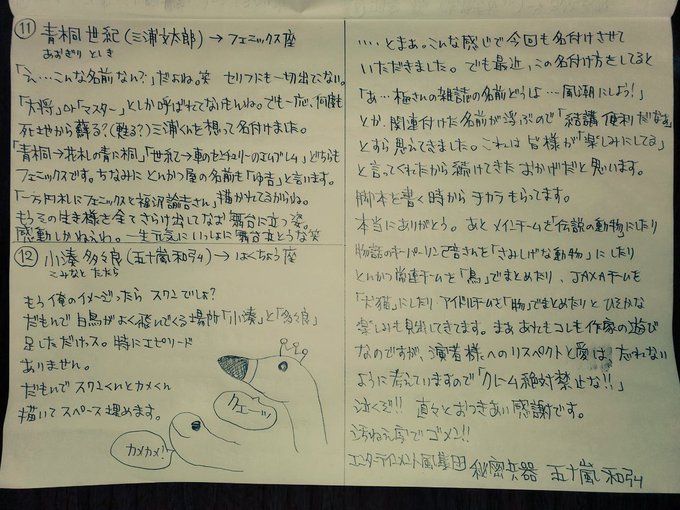 ⑪ 青桐 世紀(三浦文太郎)→フェニックス座
あおぎり としき
「え…こんな名前なん?」だよね。笑 セリフにも一切出てこない。
「大将」か「マスター」としか呼ばれてないもんね。でも一応、何度も
死地から蘇る?(甦る?)三浦くんを想って名付けました。
「青桐→花札の青に桐」「世紀→車のセンチュリーのエムブレム」どちらも
フェニックスです。ちなみにとんかつ屋の名前も「ゆ吉」と言います。
「一万円札にフェニックスと福沢諭吉さん」描かれてるからね。
もうその生き様を全てさらけ出してなお舞台に立つ姿。
感動しかねぇわ。一生元気にいっしょに舞台立とうな笑
⑫ 小湊 多々良(五十嵐和弘)→はくちょう座
こみなと たたら
もう俺のイメージったら スワンでしょ?
だもんで白鳥がよく飛んでくる場所「小湊」と「多々良」
足しただけっス。特にエピソード
ありません。
だもんで スワンくんとカメくん
描いてスペース埋めます。
クエーッ
カメカメ!
‥‥とまぁ。こんな感じで今回も名付けさせて
いただきました。でも最近、この名付け方をしてると
「あ…梅さんの雑誌の名前どうしよ…風潮にしよう!」
とか、関連付けた名前が浮ぶので「結講 便利だなぁ」
とすら思えてきました。これは 皆様が「楽しみにしてる」
と言ってくれたから続けてきた おかげだと思います。
脚本を書く時から チカラもらってます。
本当にありがとう。あと メインチームを「伝説の動物」にしたり
物語のキーパーソンを「さみしげな動物」にしたり
とんかつ常連チームを「鳥」でまとめたり、JAXAチームを
「犬猫」にしたり アイドルチームを「物」でまとめたりと ひそかな
楽しみも見出してきてます。まぁ あれもコレも作家の遊び
なのですが、演者様へのリスペクトと愛は、忘れない
ように考えていますので「クレーム絶対禁止な!!」
泣くぞ!! 直々とおつきあい感謝です。
汚ねぇ字でゴメン!!
エンターテイメント風集団 秘密兵器 五十嵐 和弘